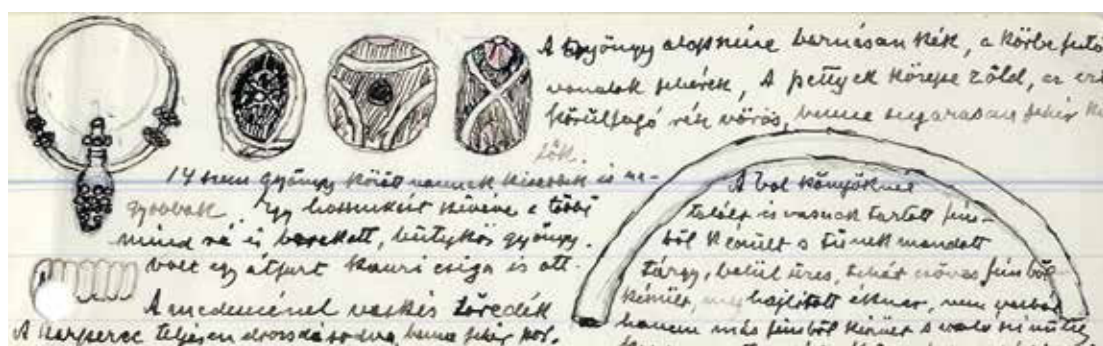 A gyöngy alapszine barnásan kék, a körbefutó
vonalak fehérek, A pettyek közepe zöld, az ezt
körülfogó rész vörös, benne sugarasan fehér
tők.
14 szem gyöngy között vannak kisebbek és na-
gyobbak. Egy hosszukást kivéve a többi
mind rá is berakott, bütykös gyöngy.
volt egy átfurt kauri csiga is ott.
A medencénél vaskés töredék
A karperec teljesen elrozsdásodva, benne fehér
A bal könyöknél
talált és vasnak tartott fém-
ből készült s tűnek mondott
tárgy, belül üres, tehát csöves fémből
készült, meghajlitott éknek, nem vasból
hanem más fémből készült s való szinüleg